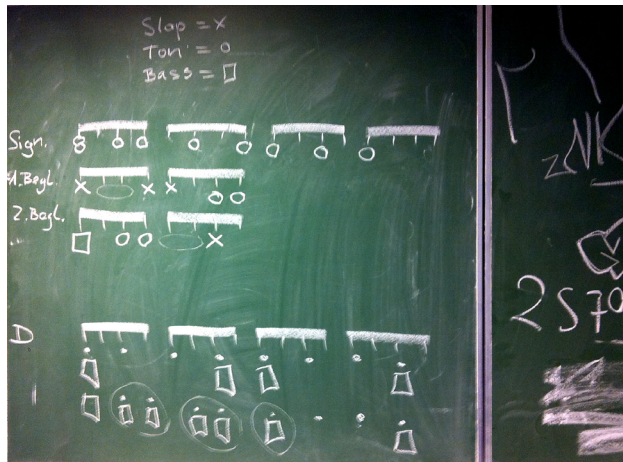 Slap = x
Ton = o
Bass = □
Sign.
1. Begl.
2. Begl.
D
2NK
2570